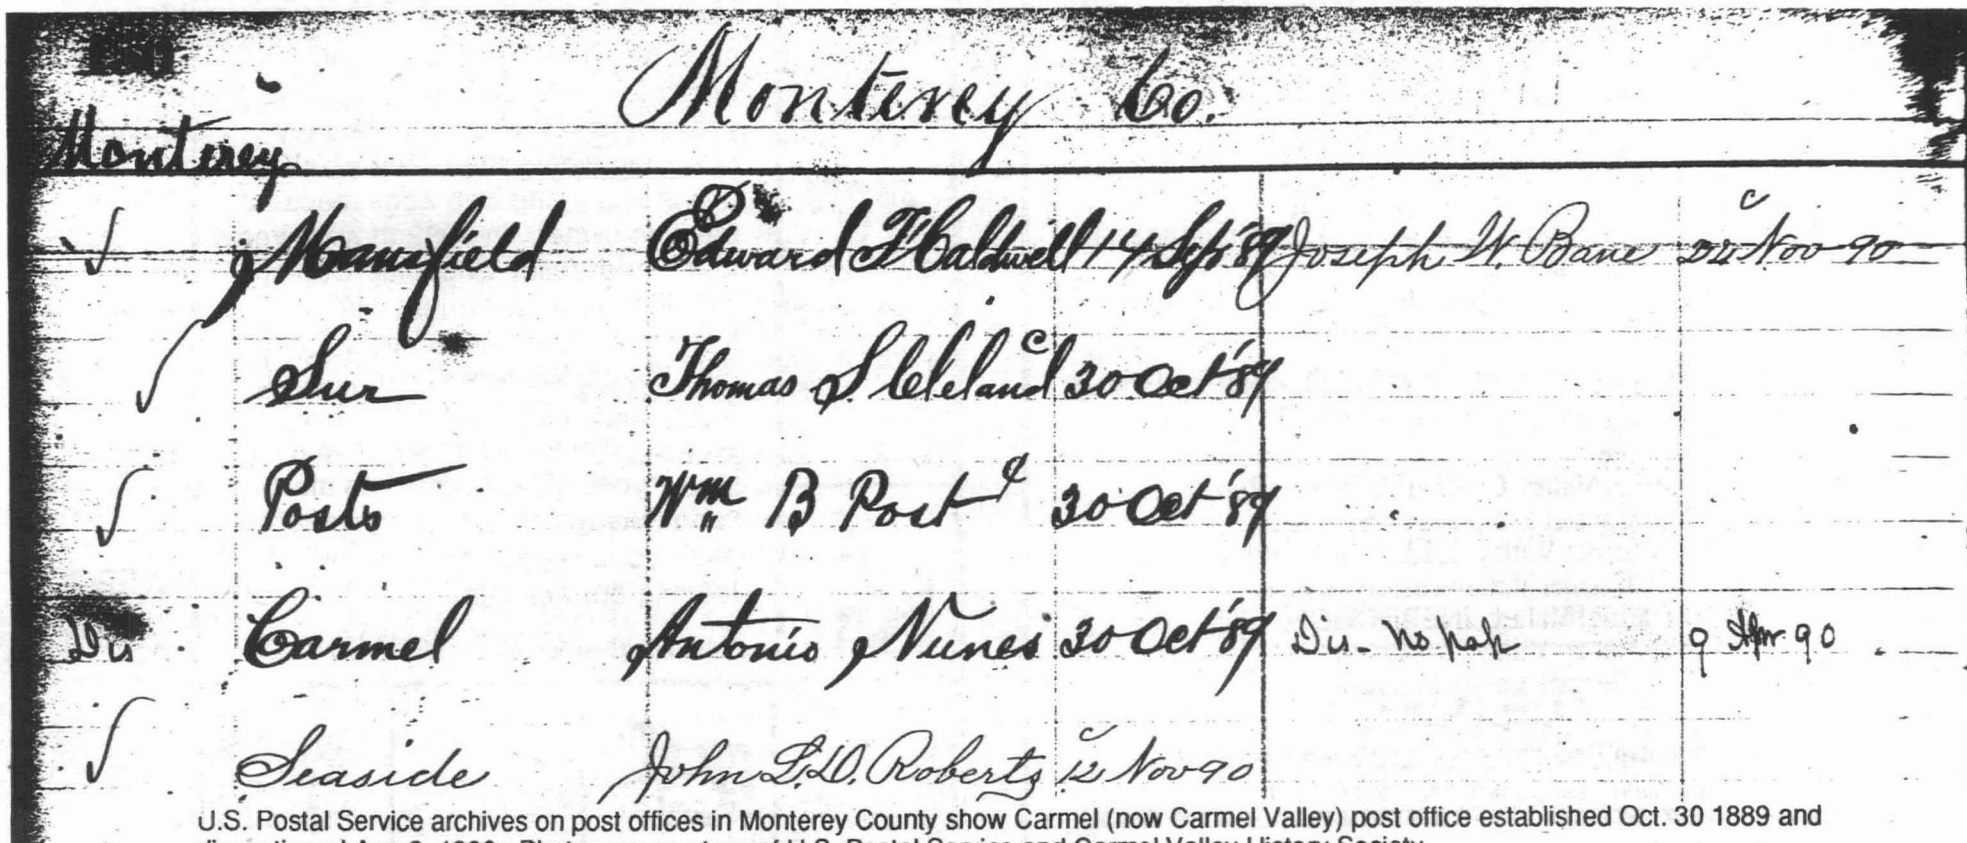 Monterey Co.
Monterey
Mansfield Edward F Caldwell 14 Sep '89 Joseph W. Bane 22 Nov 90
Sur Thomas S. Cleland c 30 Oct '89
Posts Wm B Post 30 Oct '89
Dis Carmel Antonio Nunes 30 Oct '89 Dis- no pap 9 Apr 90
Seaside John L.D. Roberts c 12 Nov 90
U.S. Postal Service archives on post offices in Monterey County show Carmel (now Carmel Valley) post office established Oct. 30 1889 and